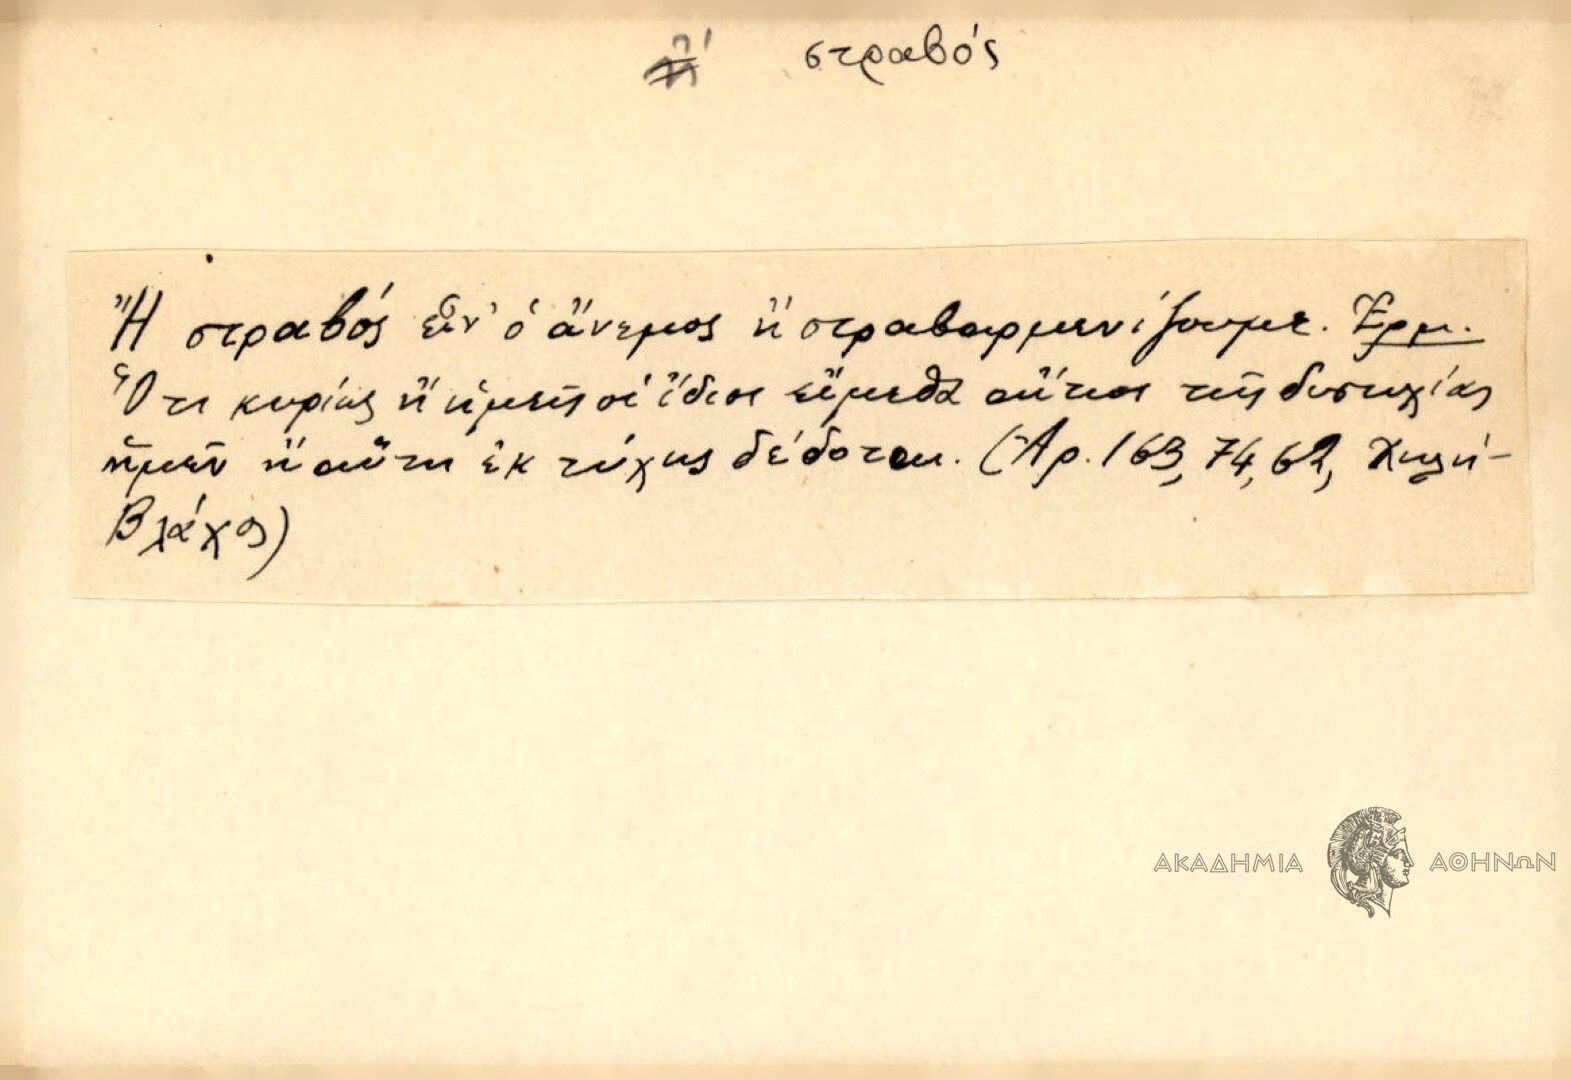 στραβός
Ἢ στραβός εἶν' ὁ ἄνεμος ἢ στραβαρμενίζουμε. Ἑρμ.
Ὅτι κυρίως ἢ ἡμεῖς οἱ ἴδιοι εἴμεθα αἴτιοι τῆς δυστυχίας
ἡμῶν ἢ αὕτη ἐκ τύχης δέδοται. (Ἀρ. 163, 74, 62, Χηλή-
Βλάχος)
ΑΚΑΔΗΜΙΑ ΑΘΗΝΩΝ